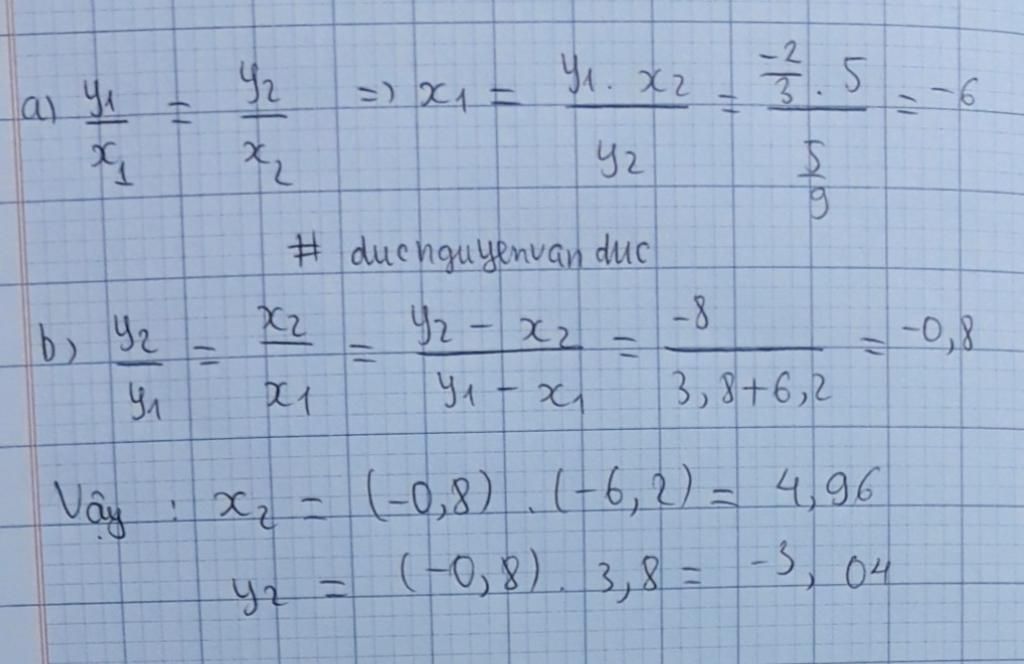 a) y₁/x₁ = y₂/x₂ => x₁ = (y₁ . x₂)/y₂ = (-2/3 . 5)/(5/9) = -6
# duchguyenvan duc
b) y₂/y₁ = x₂/x₁ = (y₂ - x₂)/(y₁ - x₁) = -8/(3,8+6,2) = -0,8
Vậy : x₂ = (-0,8) . (-6,2) = 4,96
y₂ = (-0,8) . 3,8 = -3,04